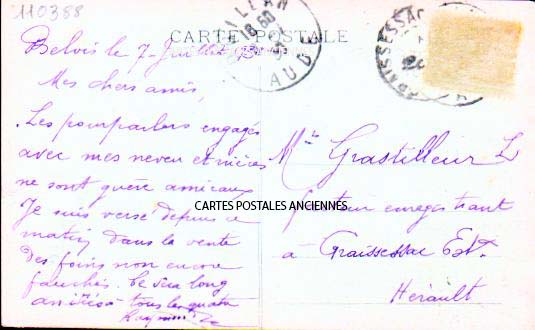 110388
CARTE POSTALE
AUDE
GRAISSESSAC
Belvis le 7 Juillet
Mes chers amis,
Les pourparlers engagés
avec mes neveu et nièces
ne sont guère amicaux
Je suis versé depuis ce
matin dans la vente
des foins non encore
fauchés. Ce sera long
amitiés à tous les quatre
Mr Grastilleur L
facteur enregistrant
CARTES POSTALES ANCIENNES
à Graissessac Est.
Hérault